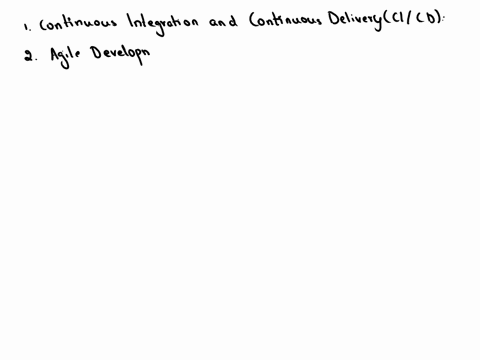 1. Continuous Integration and Continuous Delivery (CI/CD).
2. Agile Developn